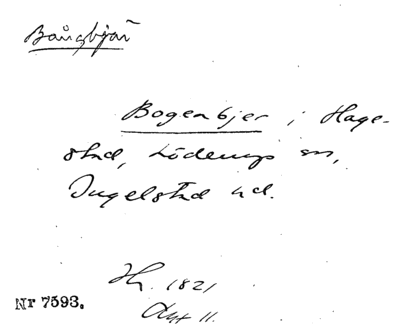 Bångbjär
Bogenbjer i Hage-
stad, Löderups sn,
Ingelstad hd.
Hr. 1821
Akt 11.
Nr 7593.